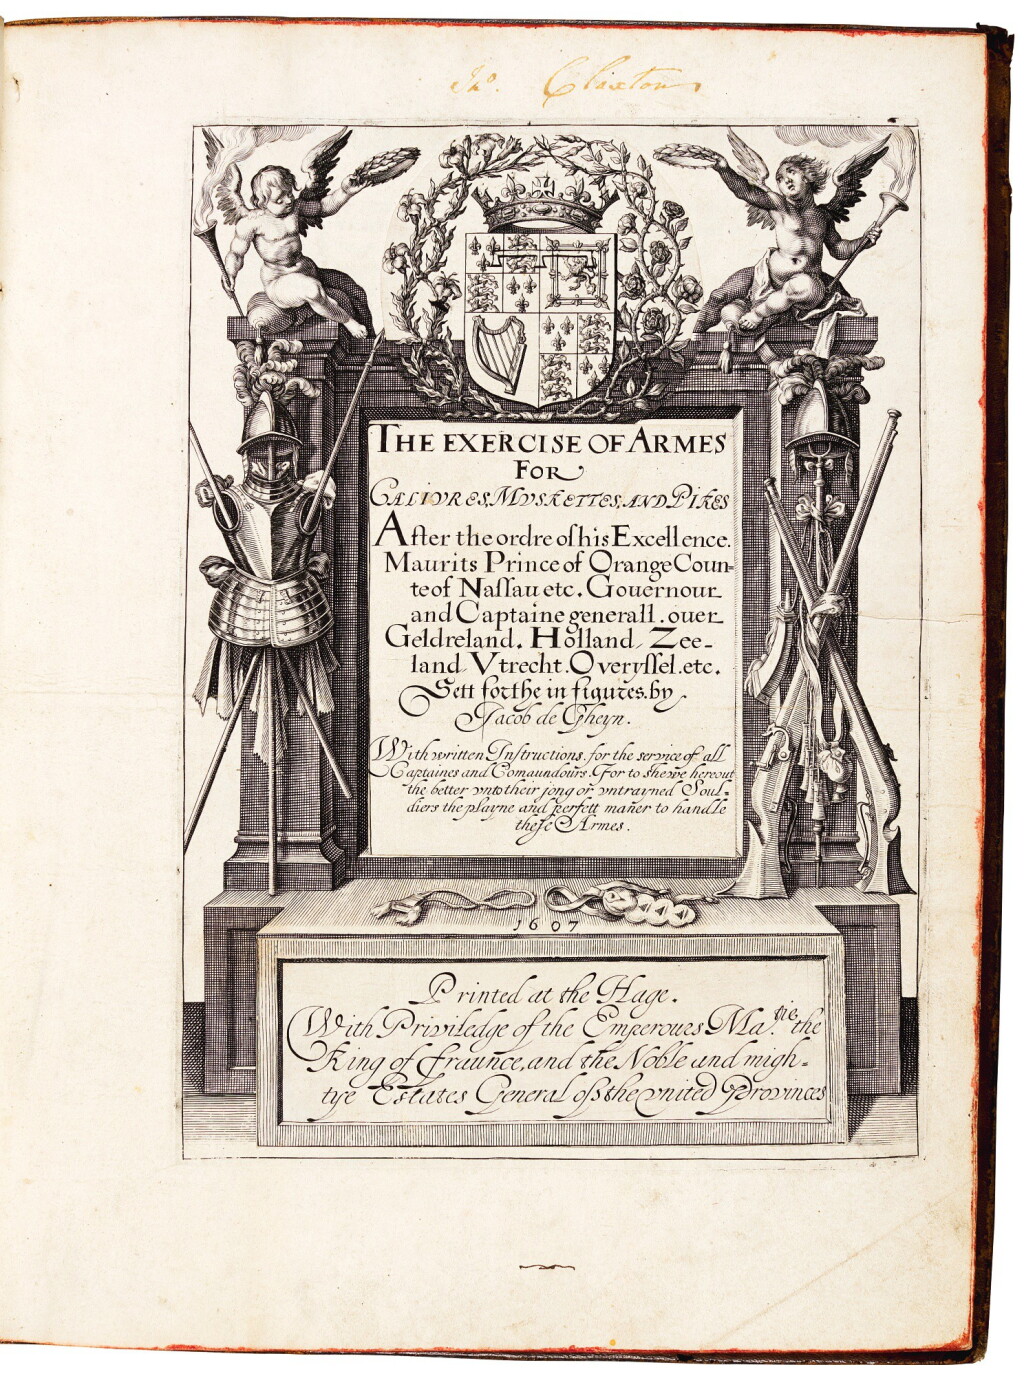 Tho. Claxton
THE EXERCISE OF ARMES
FOR
CALIVRES, MVSKETTES, AND PIKES
After the ordre of his Excellence.
Maurits Prince of Orange Coun-
te of Naſſau etc. Gouernour
and Captaine generall. ouer
Geldreland. Holland, Zee-
land Vtrecht. Overyſſel. etc.
Sett forthe in figures. by
Jacob de Gheyn.
With written Inſtructions. for the service of all
Captaines and Comaundours. For to shewe hereout
the better vnto their jong or vntrayned Soul-
diers the playne and perfett mañer to handle
theſe Armes.
1607
Printed at the Hage.
With Priviledge of the Emperours Ma.tie the
King of Fraunce, and the Noble and migh-
tye Estates General oſs the vnited Provinces